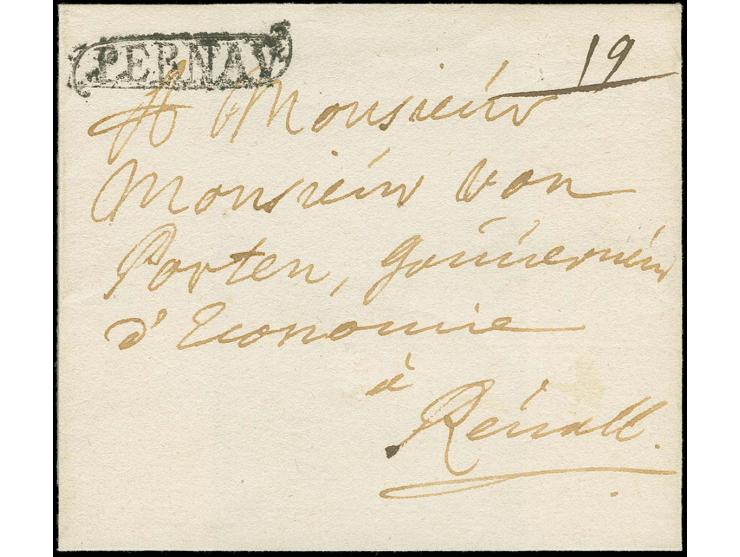 PERNAV
19
A Monsieur
Monsieur von
Porten, Gouverneur
d'Economie
à
Révall.